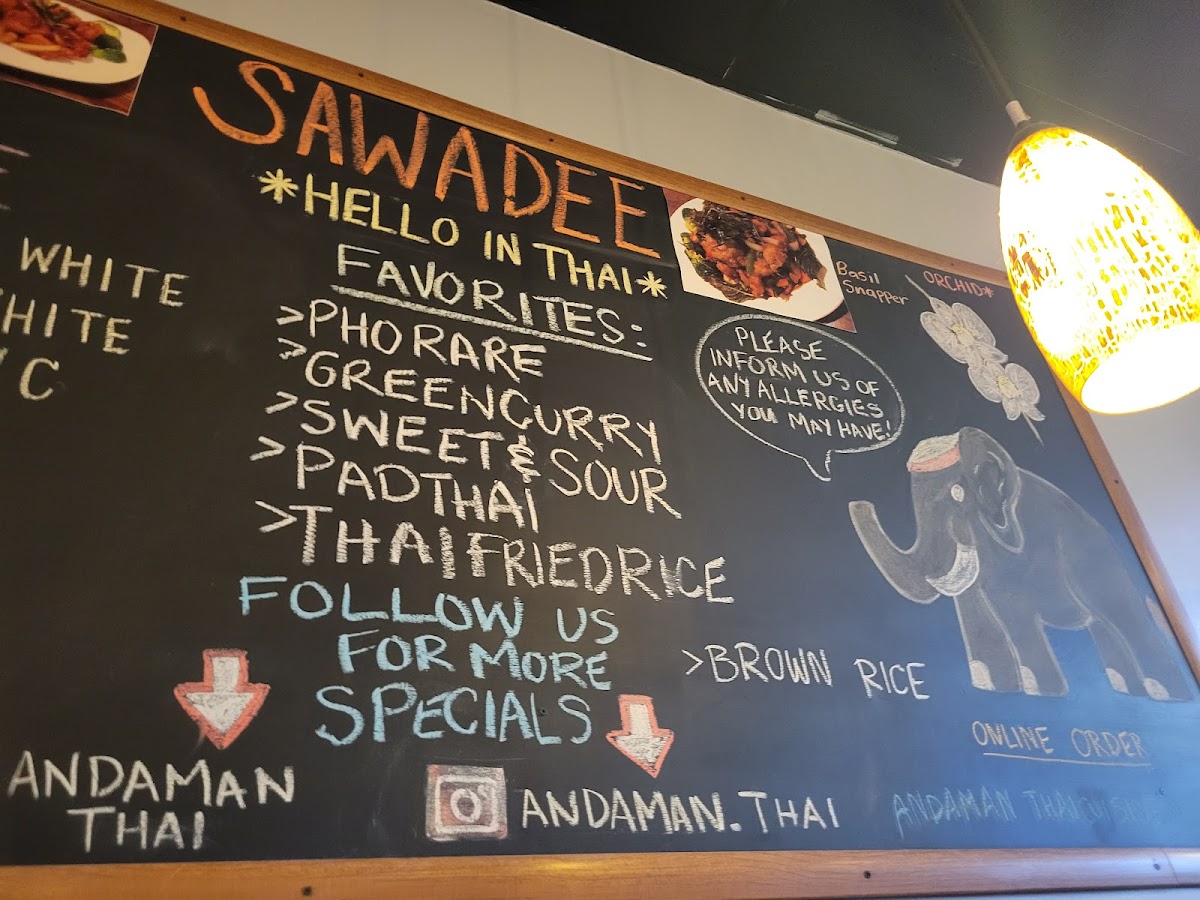 SAWADEE
*HELLO IN THAI*
FAVORITES:
>PHO RARE
>GREEN CURRY
>SWEET & SOUR
>PAD THAI
>THAI FRIED RICE
FOLLOW US
FOR MORE
SPECIALS
WHITE
HITE
C
ANDAMAN
THAI
ANDAMAN.THAI
Basil
Snapper
ORCHID*
PLEASE
INFORM US OF
ANY ALLERGIES
YOU MAY HAVE!
>BROWN RICE
ONLINE ORDER
ANDAMAN THAI